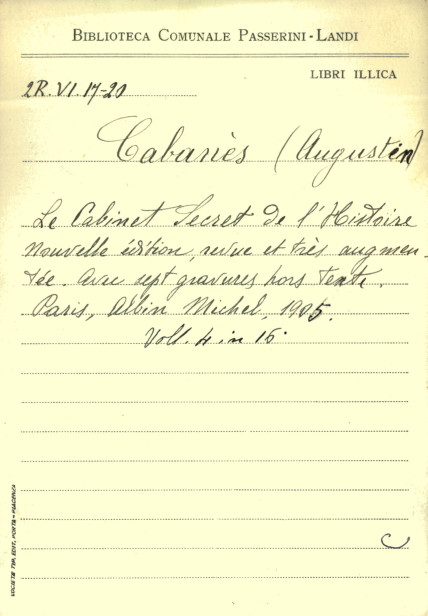 BIBLIOTECA COMUNALE PASSERINI-LANDI
LIBRI ILLICA
2R.VI.17-20
Cabanès (Augustin)
Le Cabinet Secret de l'Histoire
Nouvelle édition, revue et très augmen-
tée. Avec sept gravures hors texte.
Paris, Albin Michel, 1905.
Voll. 4 in 16°
SOCIETÀ TIP. EDIT. PORTA - PIACENZA
C